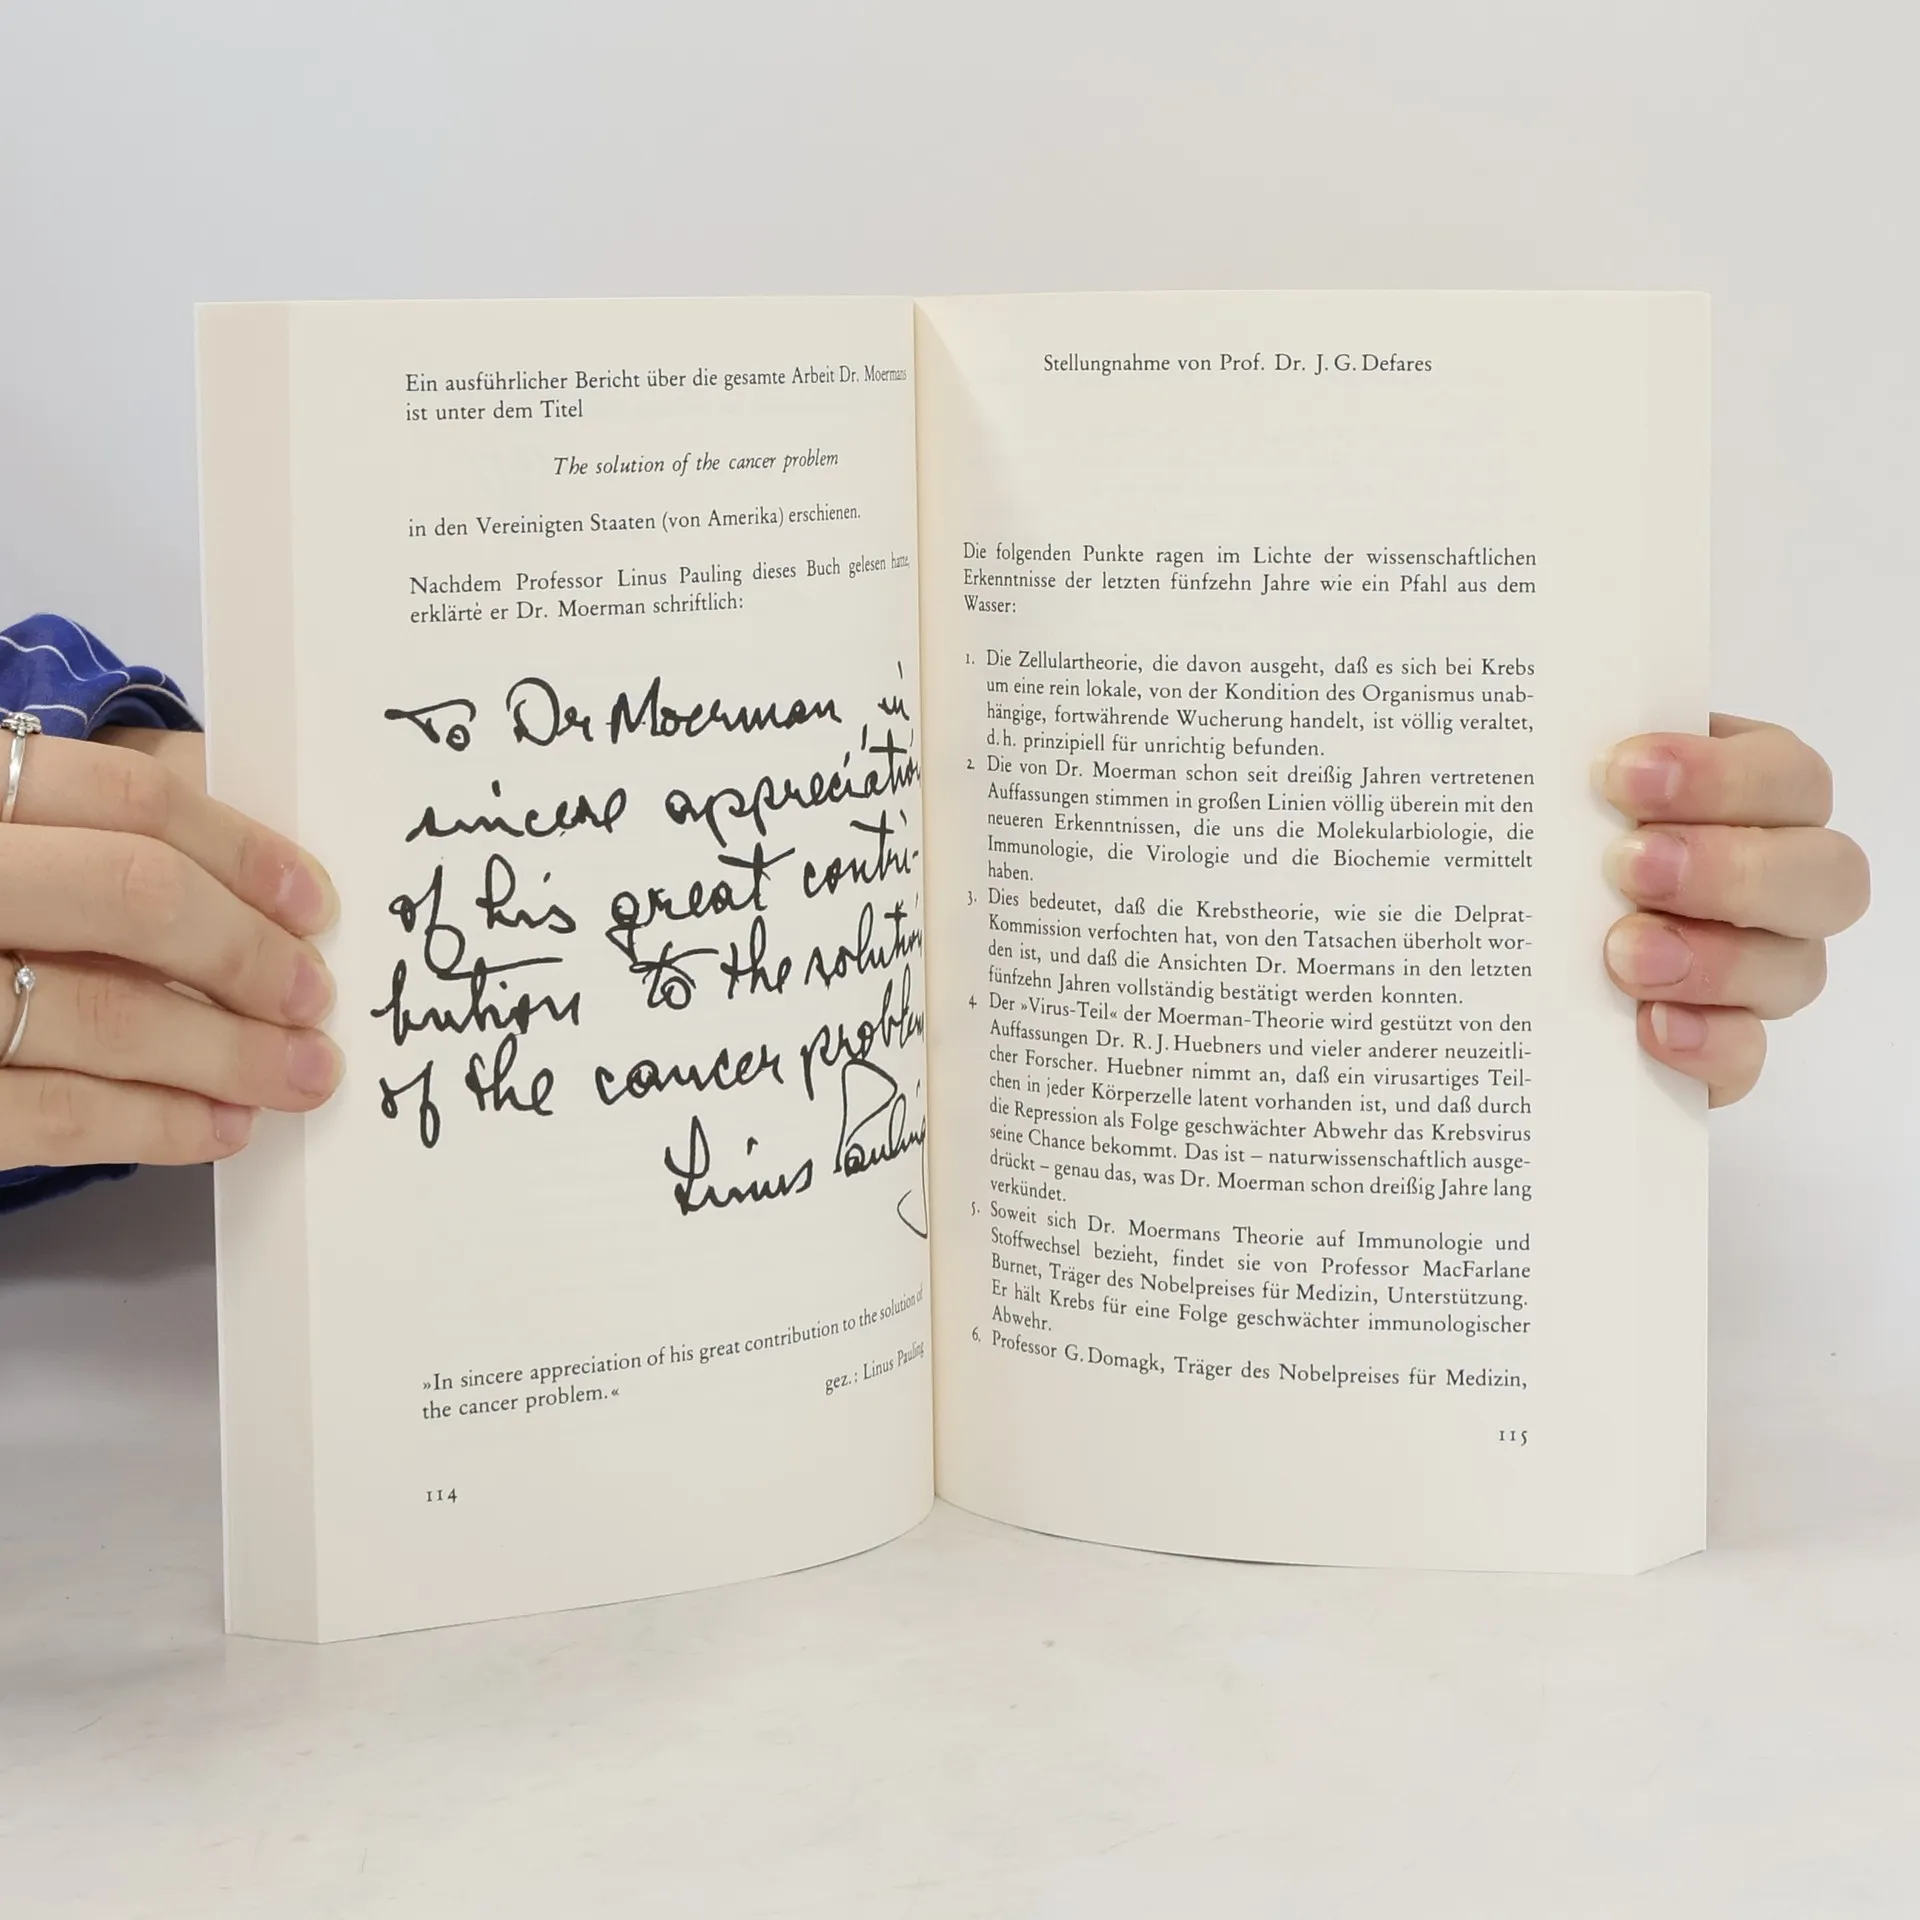 Ein ausführlicher Bericht über die gesamte Arbeit Dr. Moermans
ist unter dem Titel
The solution of the cancer problem
in den Vereinigten Staaten (von Amerika) erschienen.
Nachdem Professor Linus Pauling dieses Buch gelesen hatte,
erklärte er Dr. Moerman schriftlich:
To Dr Moerman, in
sincere appreciation
of his great contri-
bution to the solution
of the cancer problem
Linus Pauling
»In sincere appreciation of his great contribution to the solution of
the cancer problem.«
gez.: Linus Pauling
114
Stellungnahme von Prof. Dr. J. G. Defares
Die folgenden Punkte ragen im Lichte der wissenschaftlichen
Erkenntnisse der letzten fünfzehn Jahre wie ein Pfahl aus dem
Wasser:
1. Die Zellulartheorie, die davon ausgeht, daß es sich bei Krebs
um eine rein lokale, von der Kondition des Organismus unab-
hängige, fortwährende Wucherung handelt, ist völlig veraltet,
d. h. prinzipiell für unrichtig befunden.
2. Die von Dr. Moerman schon seit dreißig Jahren vertretenen
Auffassungen stimmen in großen Linien völlig überein mit den
neueren Erkenntnissen, die uns die Molekularbiologie, die
Immunologie, die Virologie und die Biochemie vermittelt
haben.
3. Dies bedeutet, daß die Krebstheorie, wie sie die Delprat-
Kommission verfochten hat, von den Tatsachen überholt wor-
den ist, und daß die Ansichten Dr. Moermans in den letzten
fünfzehn Jahren vollständig bestätigt werden konnten.
4. Der »Virus-Teil« der Moerman-Theorie wird gestützt von den
Auffassungen Dr. R. J. Huebners und vieler anderer neuzeitli-
cher Forscher. Huebner nimmt an, daß ein virusartiges Teil-
chen in jeder Körperzelle latent vorhanden ist, und daß durch
die Repression als Folge geschwächter Abwehr das Krebsvirus
seine Chance bekommt. Das ist – naturwissenschaftlich ausge-
drückt – genau das, was Dr. Moerman schon dreißig Jahre lang
verkündet.
5. Soweit sich Dr. Moermans Theorie auf Immunologie und
Stoffwechsel bezieht, findet sie von Professor MacFarlane
Burnet, Träger des Nobelpreises für Medizin, Unterstützung.
Er hält Krebs für eine Folge geschwächter immunologischer
Abwehr.
6. Professor G. Domagk, Träger des Nobelpreises für Medizin,
115